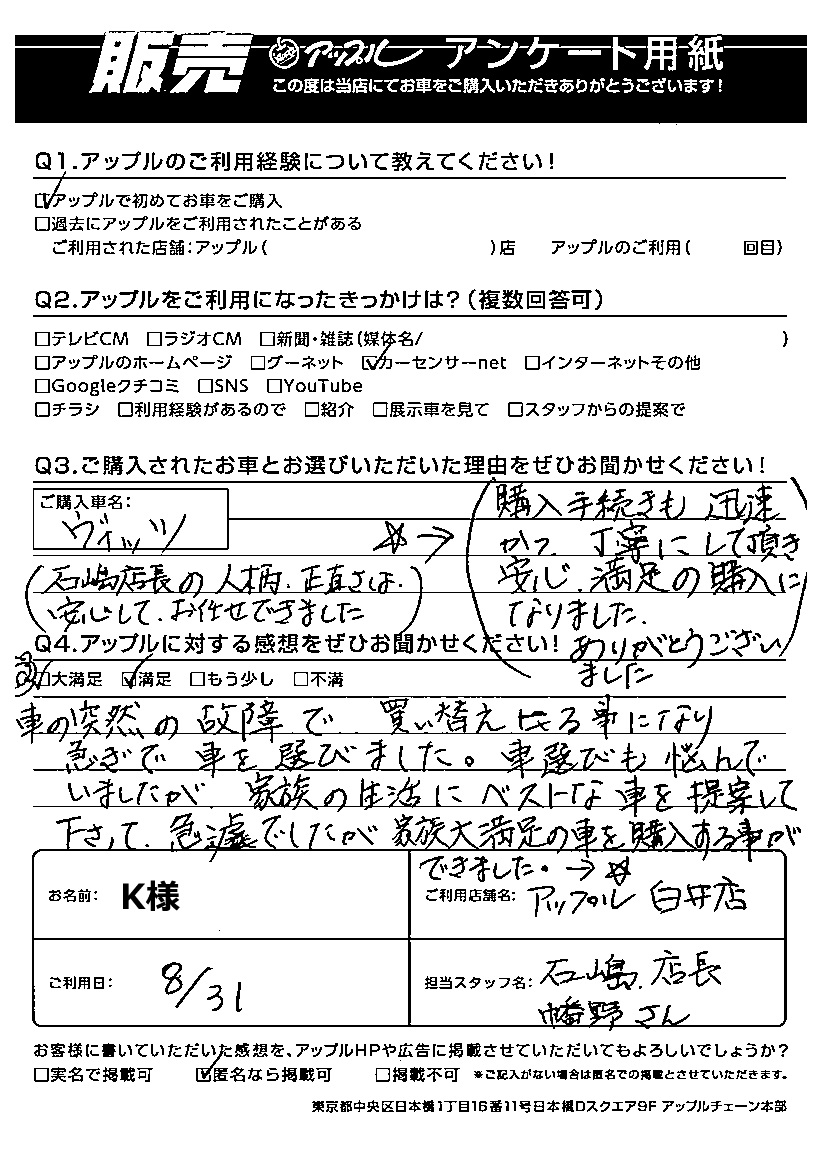 販売 アップル アンケート用紙
この度は当店にてお車をご購入いただきありがとうございます!
Q1.アップルのご利用経験について教えてください!
□アップルで初めてお車をご購入
□過去にアップルをご利用されたことがある
ご利用された店舗:アップル( )店 アップルのご利用( 回目)
Q2.アップルをご利用になったきっかけは?(複数回答可)
□テレビCM □ラジオCM □新聞・雑誌(媒体名/ )
□アップルのホームページ □グーネット □カーセンサーnet □インターネットその他
□Googleクチコミ □SNS □YouTube
□チラシ □利用経験があるので □紹介 □展示車を見て □スタッフからの提案で
Q3.ご購入されたお車とお選びいただいた理由をぜひお聞かせください!
ご購入車名:
ヴィッツ
(石嶋店長の人柄.正直さは.
安心して.お任せできました)
☆→
(購入手続きも迅速
かつ丁寧にして頂き
安心.満足の購入に
なりました.
ありがとうござい
ました)
Q4.アップルに対する感想をぜひお聞かせください!
□大満足 □満足 □もう少し □不満
車の突然の故障で.買い替えせる事になり
急ぎで車を選びました。車選びも悩んで
いましたが.家族の生活にベストな車を提案して
下さって.急遽でしたが家族大満足の車を購入する事が
できました。→☆
お名前: K様
ご利用店舗名: アップル 白井店
ご利用日: 8/31
担当スタッフ名: 石嶋.店長
幡野さん
お客様に書いていただいた感想を、アップルHPや広告に掲載させていただいてもよろしいでしょうか?
□実名で掲載可 □匿名なら掲載可 □掲載不可 ※ご記入がない場合は匿名での掲載とさせていただきます。
東京都中央区日本橋1丁目16番11号日本橋Dスクエア9F アップルチェーン本部